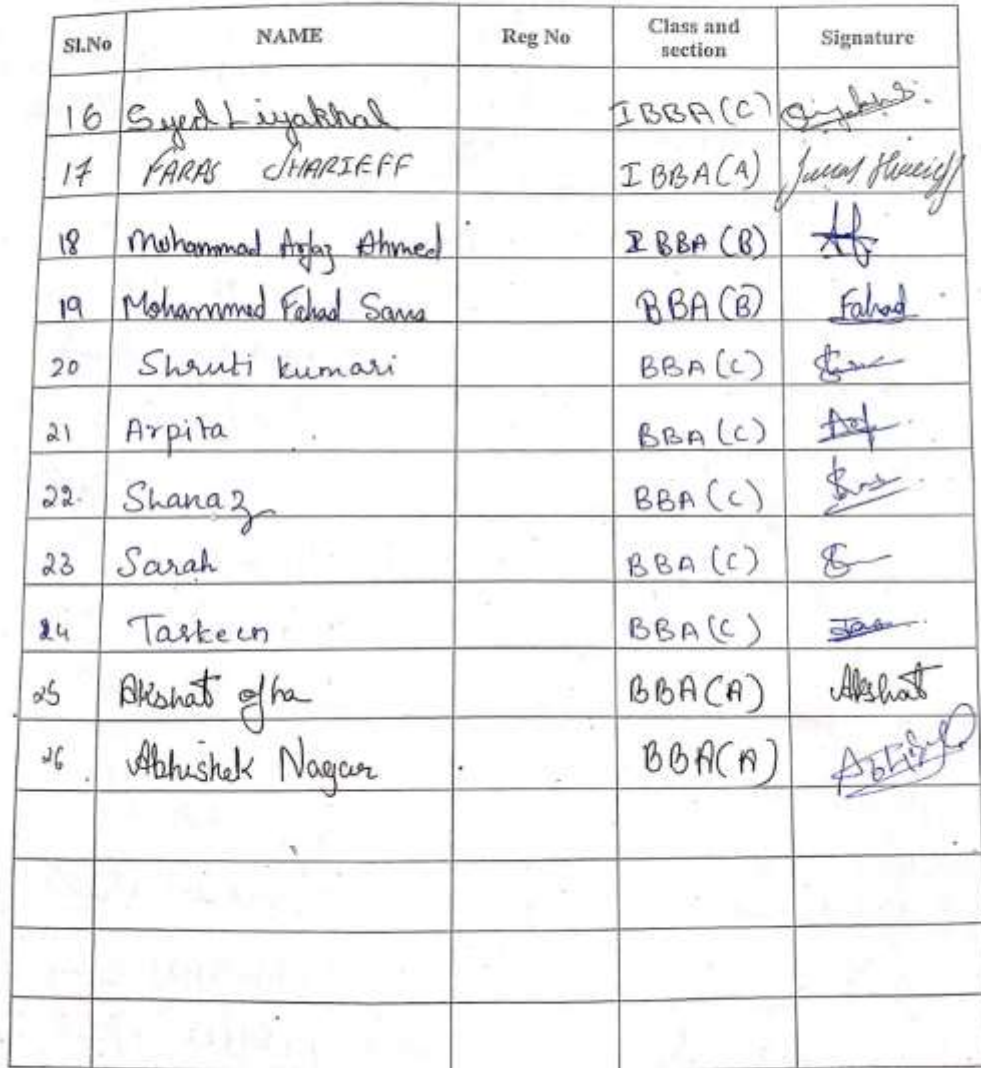 Sl.No NAME Reg No Class and section Signature
16 Syed Liyakhal I BBA (C)
17 FARAS SHARIEFF I BBA (A)
18 Mohammad Ahmed I BBA (B)
19 Mohammed Fahad Sana BBA (B) Fahad
20 Shruti kumari BBA (C)
21 Arpita BBA (C)
22. Shanaz BBA (C)
23 Sarah BBA (C)
24 Taskeen BBA (C)
25 Akshat Jha BBA (A) Akshat
26 Abhishek Nagar BBA (A)